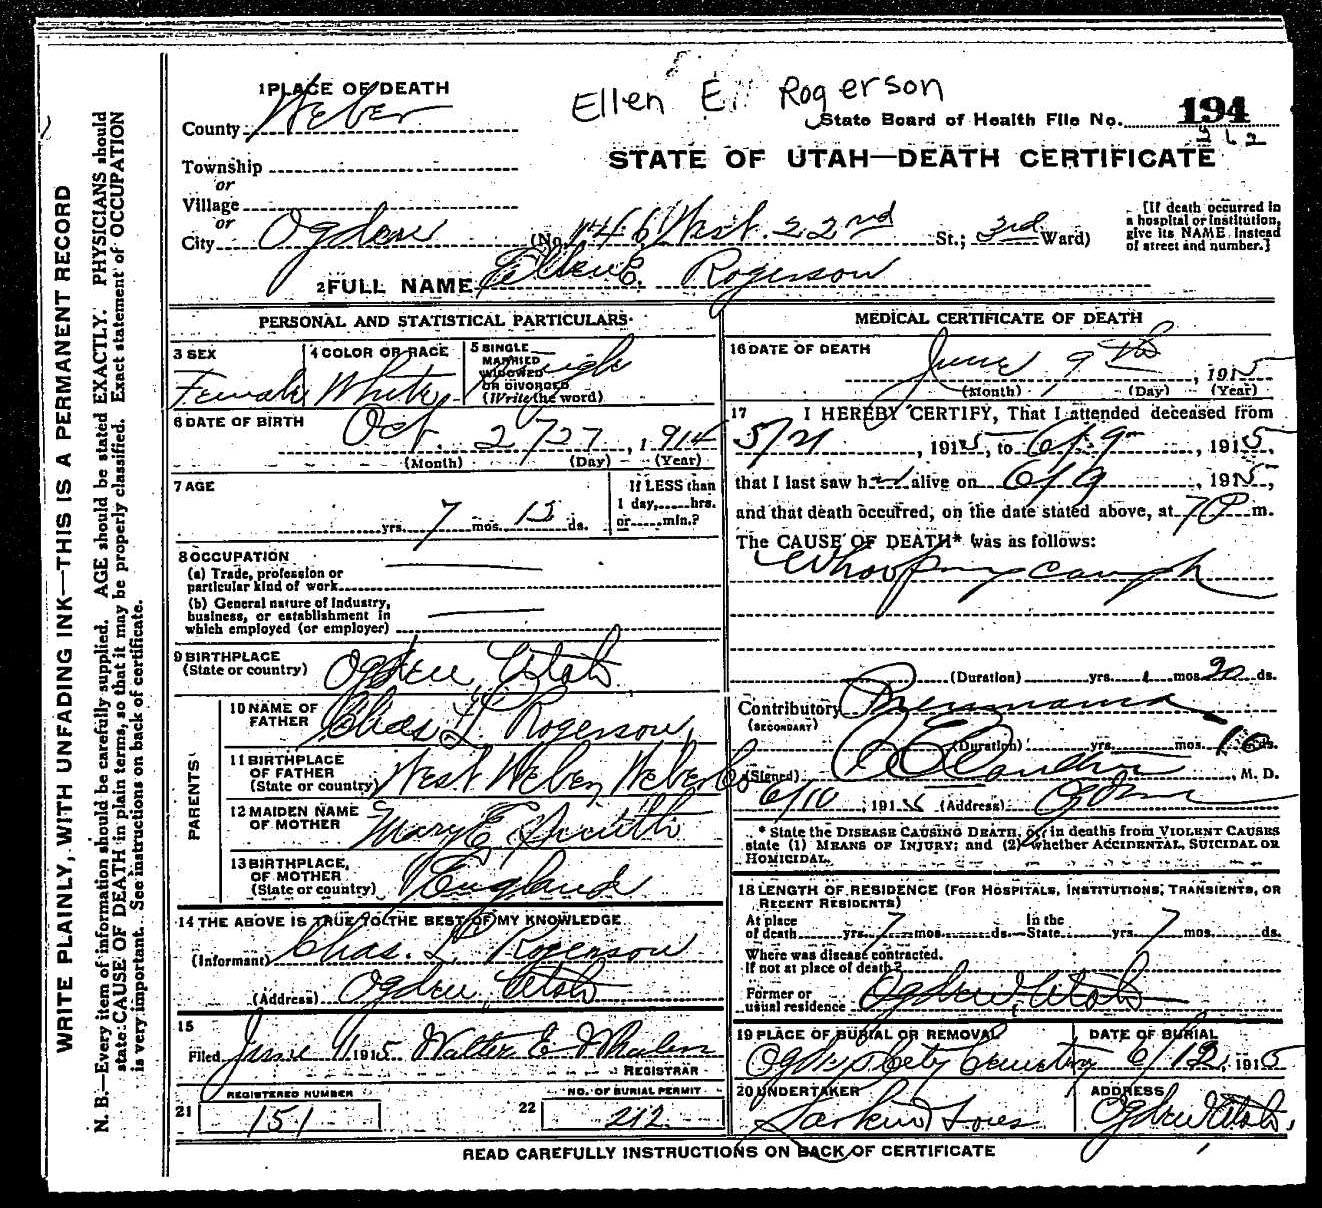 Ellen E. Rogerson
1 PLACE OF DEATH
County Weber
State Board of Health File No. 194
212
STATE OF UTAH—DEATH CERTIFICATE
Township
or
Village
or
City Ogden (No. 146 West 22nd St.; 3rd Ward)
[If death occurred in
a hospital or institution,
give its NAME instead
of street and number.]
2 FULL NAME Ellen E. Rogerson
PERSONAL AND STATISTICAL PARTICULARS
3 SEX
Female
4 COLOR OR RACE
White
5 SINGLE
MARRIED
WIDOWED
OR DIVORCED
(Write the word)
Single
6 DATE OF BIRTH
Oct. 27, 1914
(Month) (Day) (Year)
7 AGE
yrs. 7 mos. 13 ds.
If LESS than
1 day, hrs.
or min.?
8 OCCUPATION
(a) Trade, profession or
particular kind of work
(b) General nature of Industry,
business, or establishment in
which employed (or employer)
9 BIRTHPLACE
(State or country) Ogden Utah
PARENTS
10 NAME OF
FATHER Chas L. Rogerson
11 BIRTHPLACE
OF FATHER
(State or country) West Weber, Weber Co
12 MAIDEN NAME
OF MOTHER Mary E. Smith
13 BIRTHPLACE,
OF MOTHER
(State or country) England
14 THE ABOVE IS TRUE TO THE BEST OF MY KNOWLEDGE
(Informant) Chas. L. Rogerson
(Address) Ogden, Utah
15
Filed June 11 1915 Walter E Whalen
REGISTRAR
21 REGISTERED NUMBER
151
22 NO. OF BURIAL PERMIT
212
MEDICAL CERTIFICATE OF DEATH
16 DATE OF DEATH
June 9th, 1915
(Month) (Day) (Year)
17 I HEREBY CERTIFY, That I attended deceased from
5/21, 1915, to 6/9, 1915,
that I last saw her alive on 6/9, 1915,
and that death occurred, on the date stated above, at 7 P m.
The CAUSE OF DEATH* was as follows:
Whooping cough
(Duration) yrs. mos. 20 ds.
Contributory Pneumonia
(SECONDARY)
(Duration) yrs. mos. 10 ds.
(Signed) , M. D.
6/10, 1915 (Address) Ogden
* State the DISEASE CAUSING DEATH, or, in deaths from VIOLENT CAUSES
state (1) MEANS OF INJURY; and (2) whether ACCIDENTAL, SUICIDAL OR
HOMICIDAL.
18 LENGTH OF RESIDENCE (FOR HOSPITALS, INSTITUTIONS, TRANSIENTS, OR
RECENT RESIDENTS)
At place
of death yrs. 7 mos. ds.
In the
State yrs. 7 mos. ds.
Where was disease contracted,
if not at place of death?
Former or
usual residence Ogden Utah
19 PLACE OF BURIAL OR REMOVAL
Ogden City Cemetery
DATE OF BURIAL
6/12, 1915
20 UNDERTAKER
Larkin & Sons
ADDRESS
Ogden Utah
READ CAREFULLY INSTRUCTIONS ON BACK OF CERTIFICATE
WRITE PLAINLY, WITH UNFADING INK—THIS IS A PERMANENT RECORD
N. B.—Every item of information should be carefully supplied. AGE should be stated EXACTLY. PHYSICIANS should
state CAUSE OF DEATH in plain terms, so that it may be properly classified. Exact statement of OCCUPATION
is very important. See instructions on back of certificate.